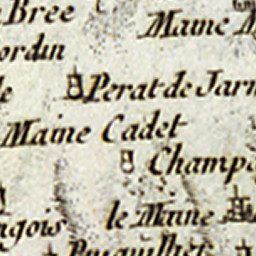 Bree
Maine M
ordin
le
Perat de Jarn
Maine Cadet
Champ
le Maine
ngois